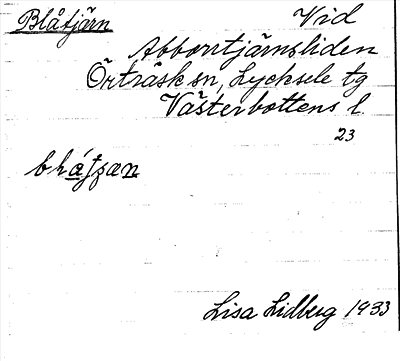 Blåtjärn Vid
Abborrtjärnsliden
Örträsk sn, Lycksele tg
Västerbottens l.
23
Lisa Lidberg 1933